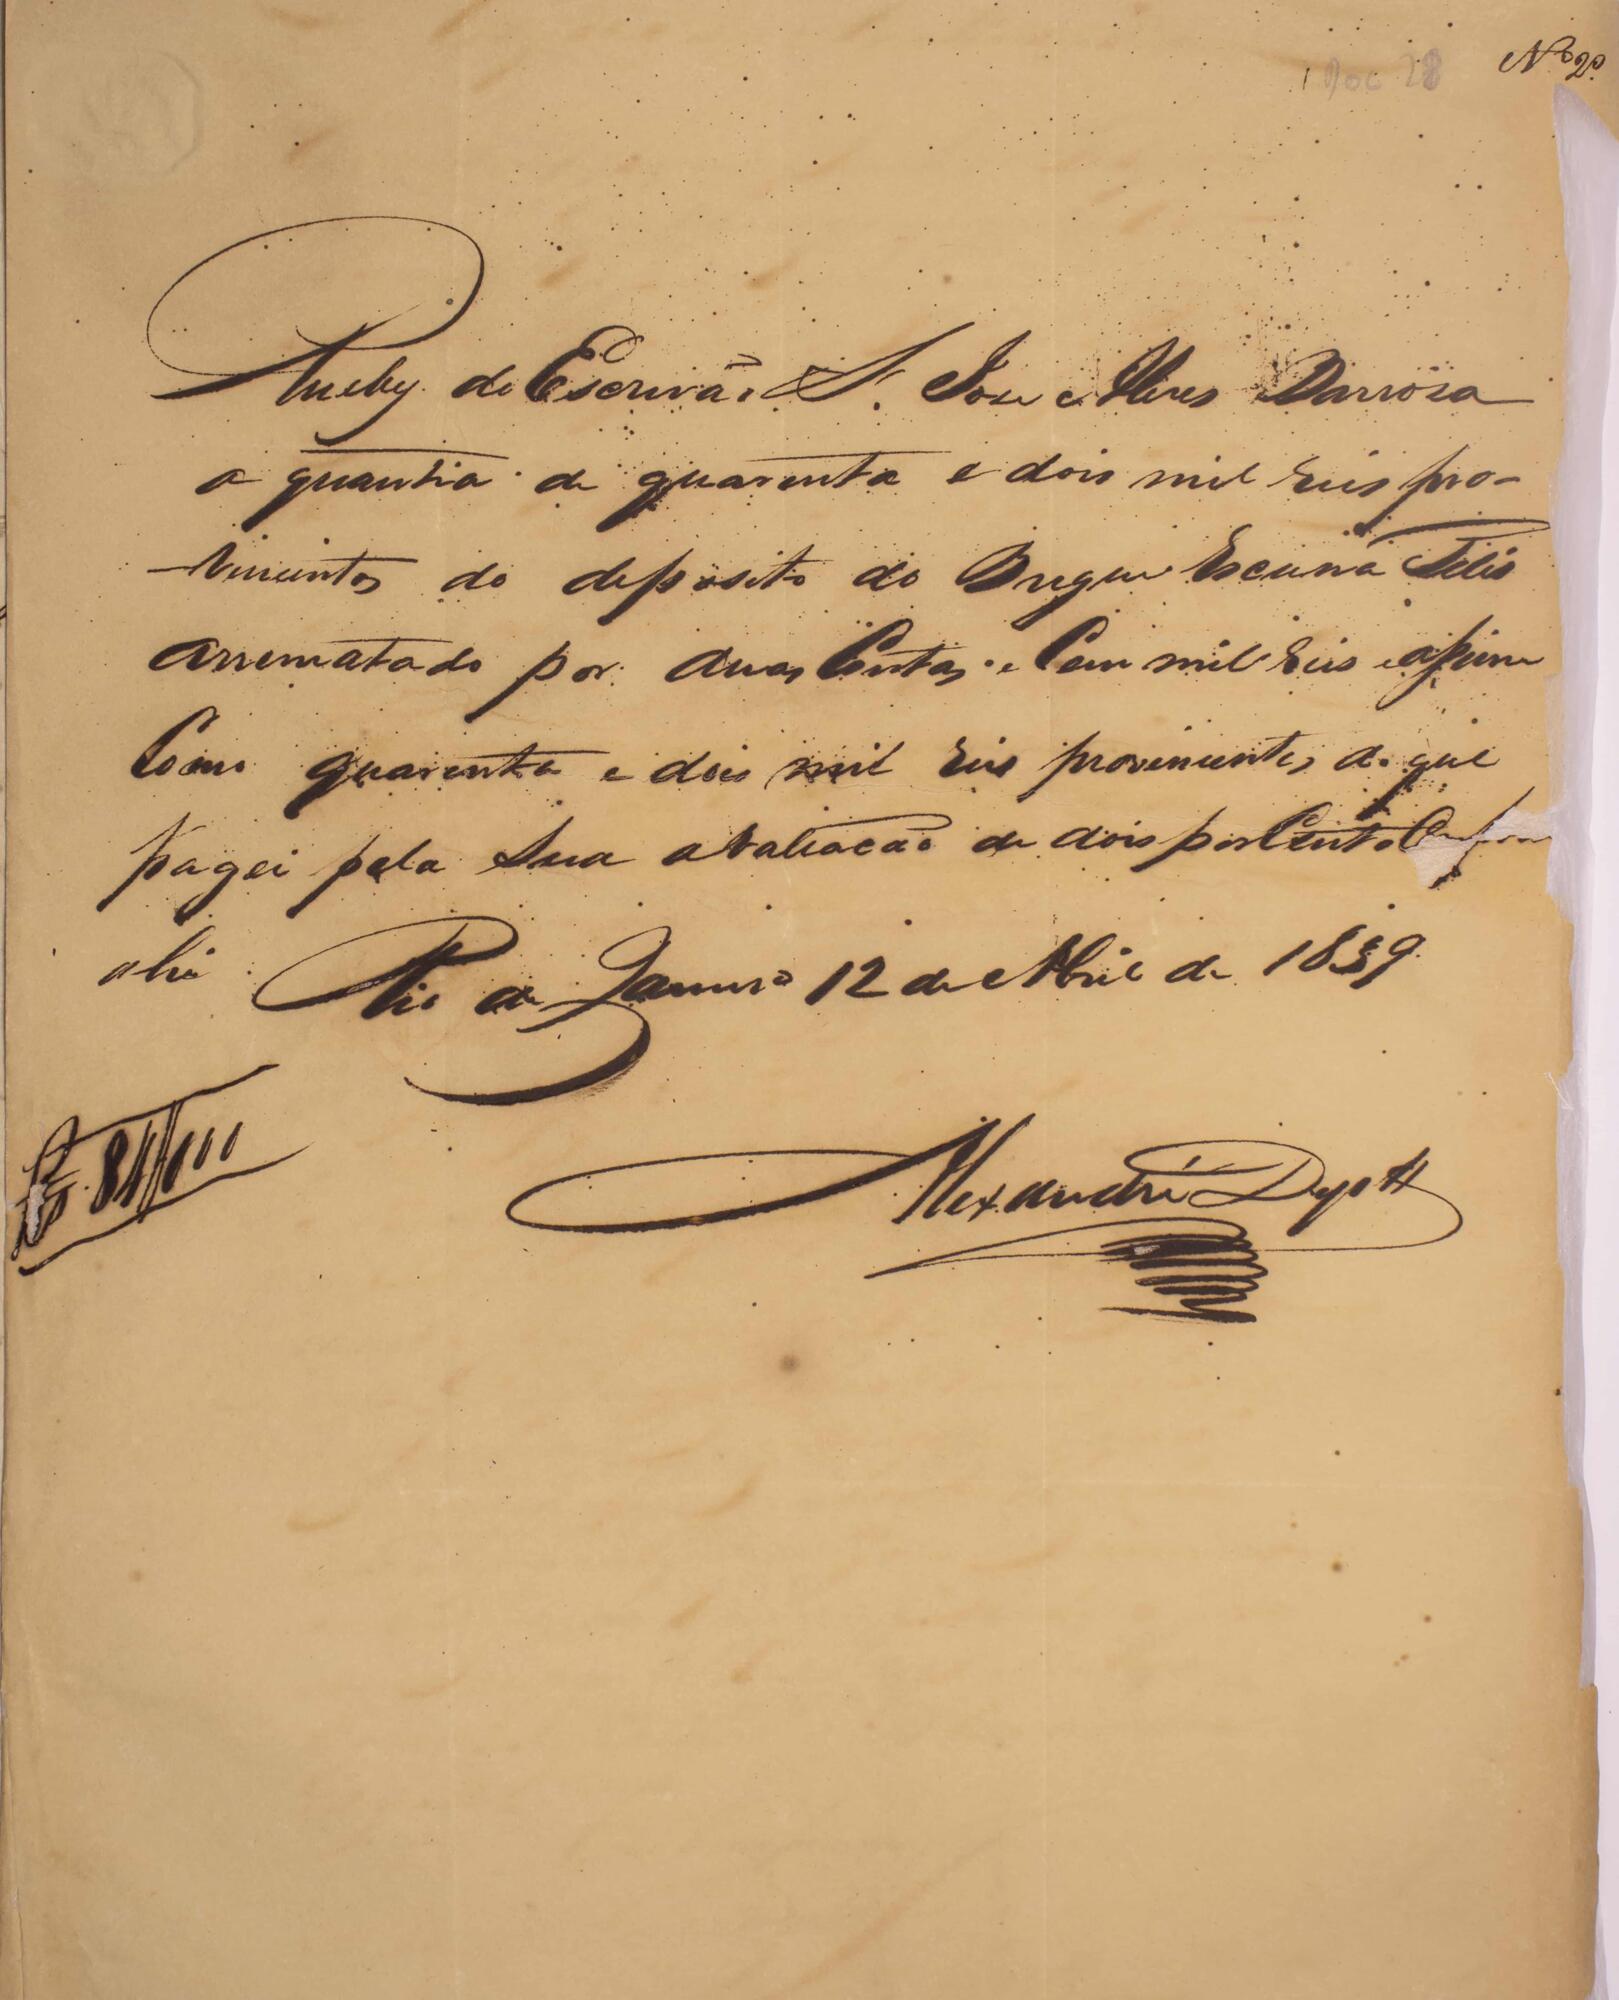 Nº 20
Doc 28
Rceby do Escrivão S.r Jose Alves Darroza
a quantia de quarenta e dois mil reis pro-
vinientes do deposito do Brigue Escuna Felis
arrematado por duas Contos e Cem mil reis e asim
Como quarenta e dois mil reis provinientes do que
pagei pela sua avaliacão de dois por Cento
Rio de Janeiro 12 de Abril de 1839
Rs 84//000
Alexandre Dyott